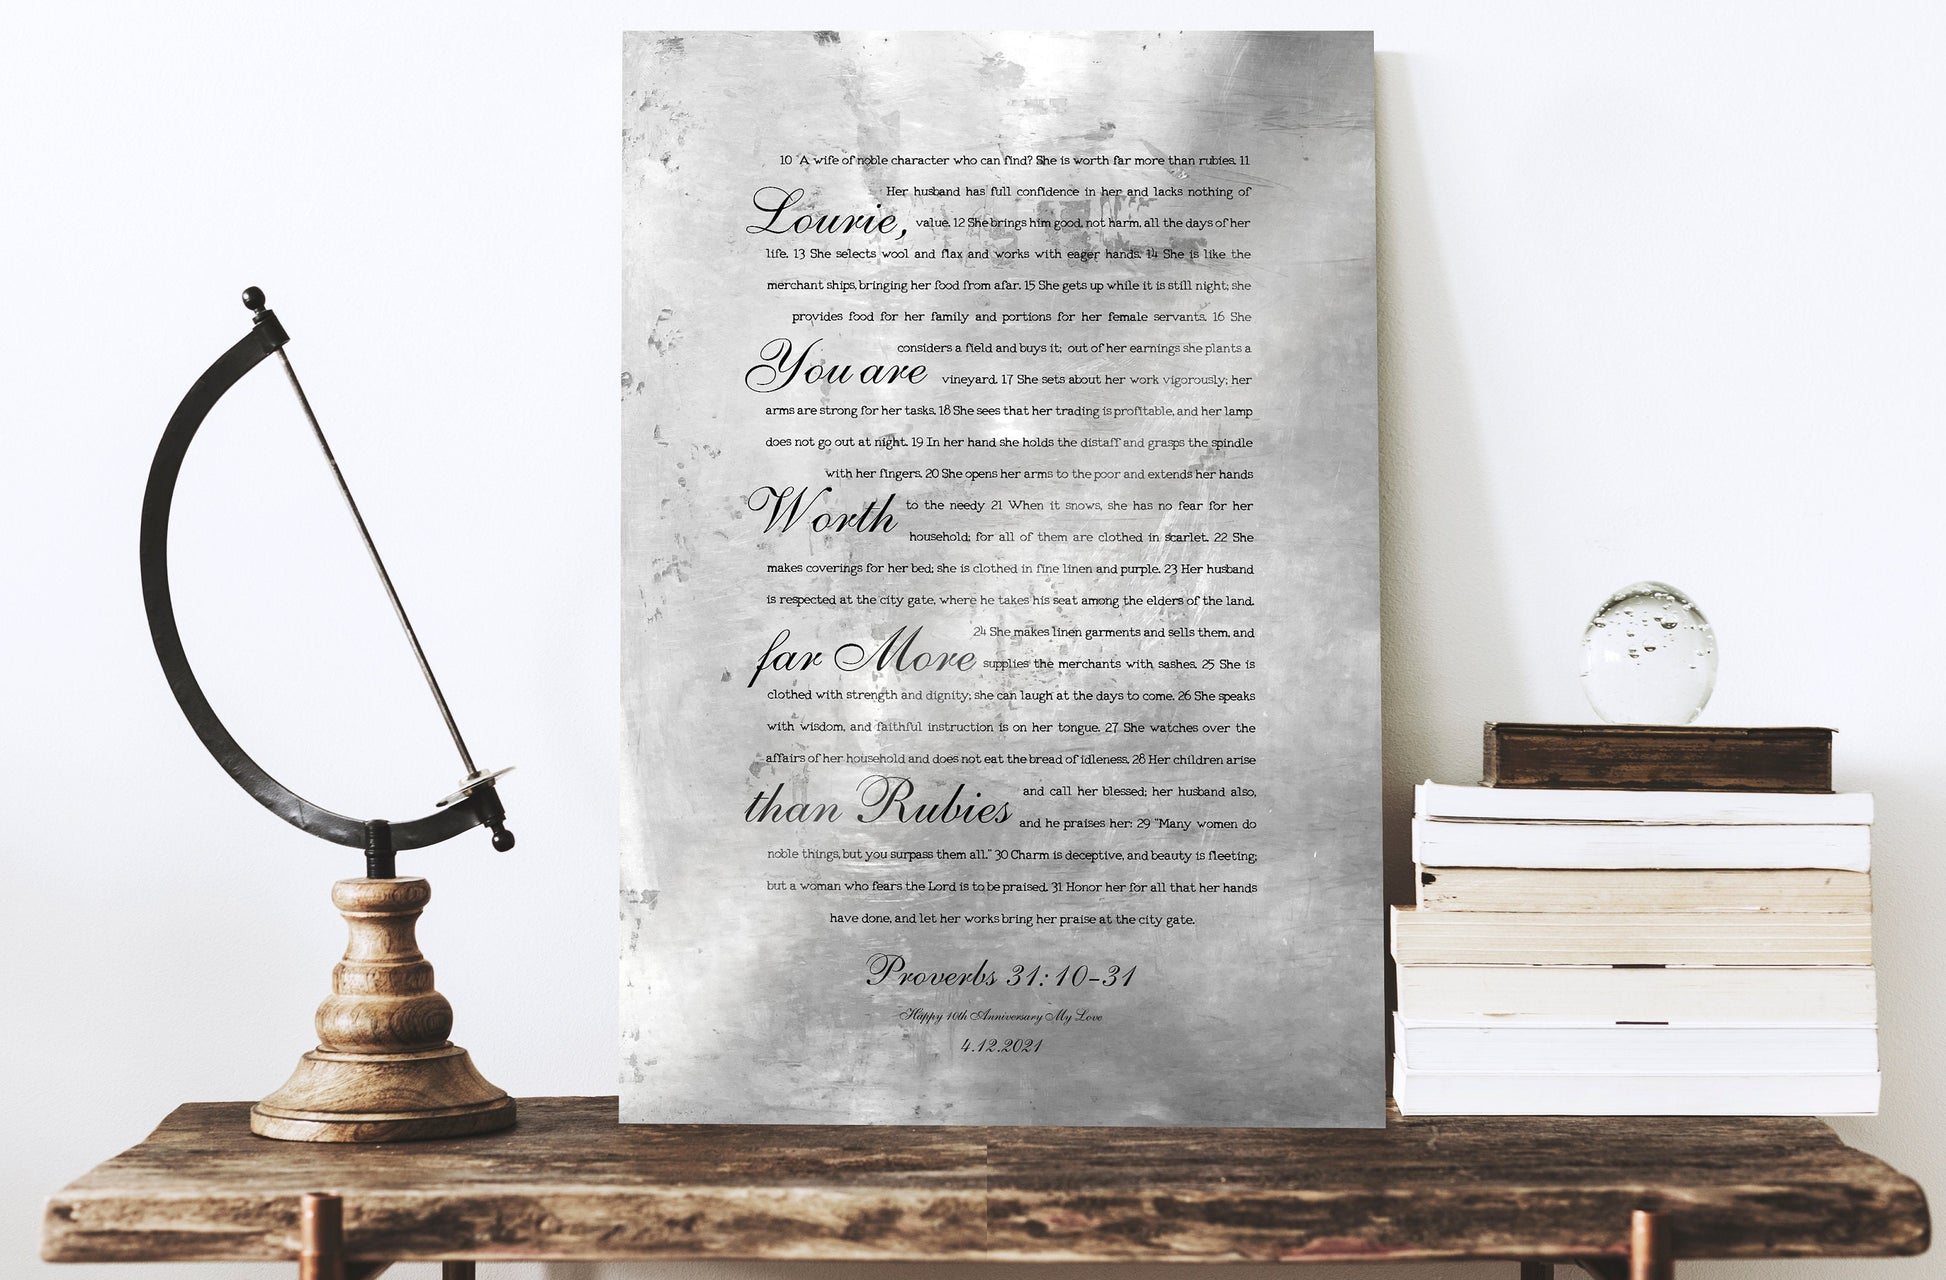 10 "A wife of noble character who can find? She is worth far more than rubies. 11
Her husband has full confidence in her and lacks nothing of
Lourie,
value. 12 She brings him good, not harm, all the days of her
life. 13 She selects wool and flax and works with eager hands. 14 She is like the
merchant ships, bringing her food from afar. 15 She gets up while it is still night; she
provides food for her family and portions for her female servants. 16 She
considers a field and buys it; out of her earnings she plants a
You are
vineyard. 17 She sets about her work vigorously; her
arms are strong for her tasks. 18 She sees that her trading is profitable, and her lamp
does not go out at night. 19 In her hand she holds the distaff and grasps the spindle
with her fingers. 20 She opens her arms to the poor and extends her hands
Worth
to the needy 21 When it snows, she has no fear for her
household; for all of them are clothed in scarlet. 22 She
makes coverings for her bed; she is clothed in fine linen and purple. 23 Her husband
is respected at the city gate, where he takes his seat among the elders of the land.
24 She makes linen garments and sells them, and
far More
supplies the merchants with sashes. 25 She is
clothed with strength and dignity; she can laugh at the days to come. 26 She speaks
with wisdom, and faithful instruction is on her tongue. 27 She watches over the
affairs of her household and does not eat the bread of idleness. 28 Her children arise
than Rubies
and call her blessed; her husband also,
and he praises her: 29 "Many women do
noble things, but you surpass them all." 30 Charm is deceptive, and beauty is fleeting;
but a woman who fears the Lord is to be praised. 31 Honor her for all that her hands
have done, and let her works bring her praise at the city gate.
Proverbs 31:10-31
Happy 10th Anniversary My Love
4.12.2021